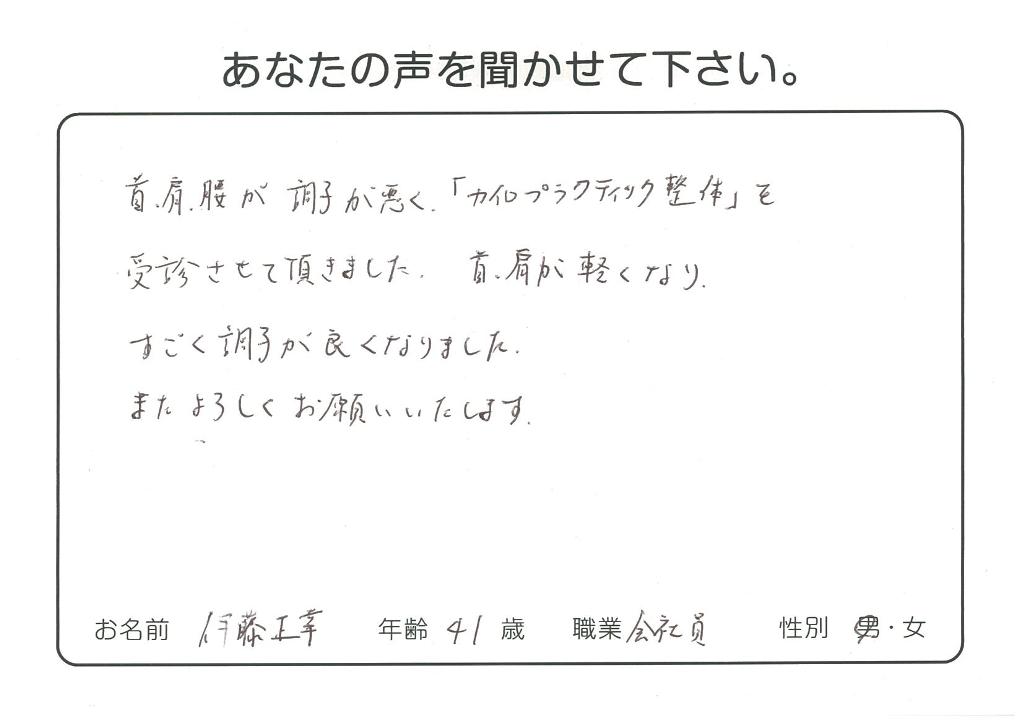 あなたの声を聞かせて下さい。
首、肩、腰が 調子が悪く、「カイロプラクティック整体」を
受診させて頂きました。 首、肩が軽くなり、
すごく調子が良くなりました。
またよろしくお願いいたします。
お名前 伊藤正幸 年齢 41 歳 職業 会社員 性別 男・女